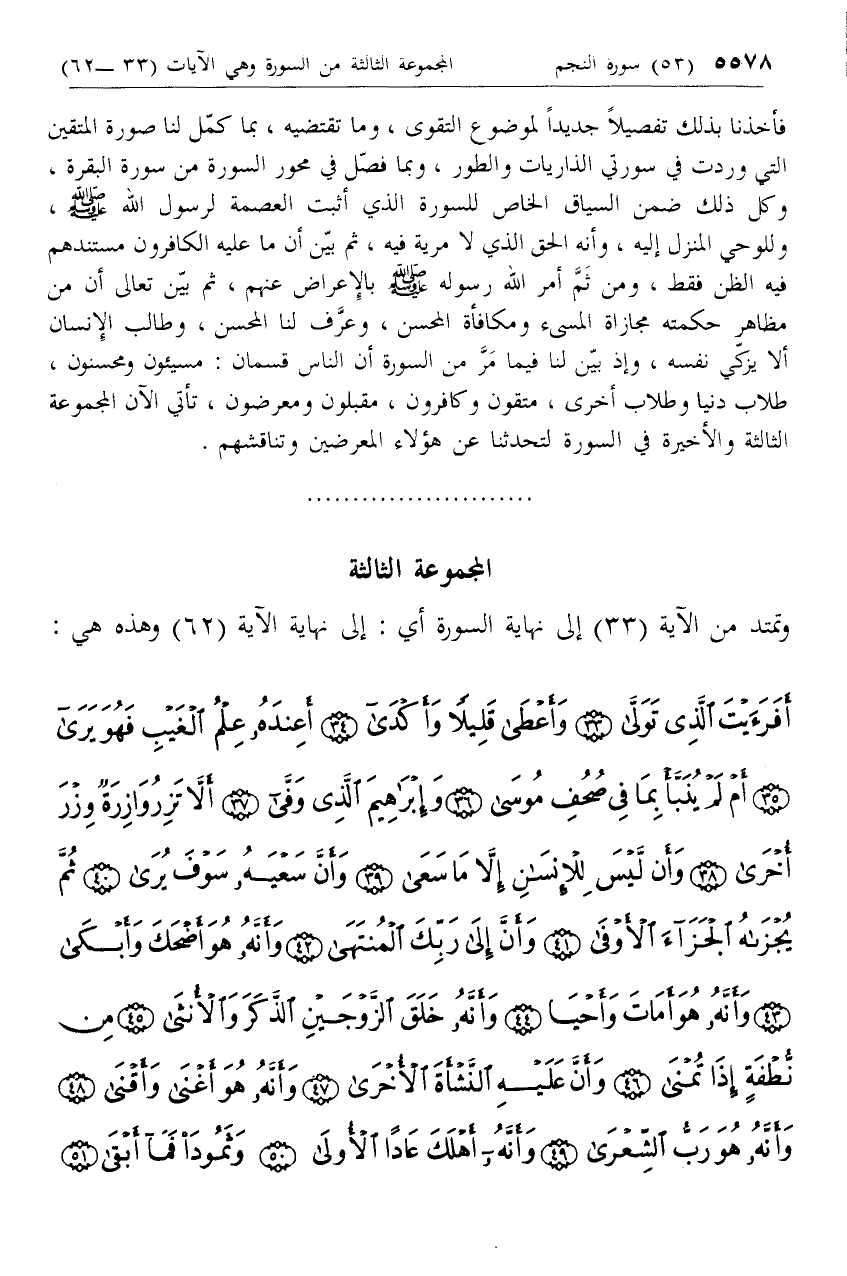 ٥٥٧٨ (٥٣) سورة النجم المجموعة الثالثة من السورة وهي الآيات (٣٣ – ٦٢)
فأخذنا بذلك تفصيلاً جديداً لموضوع التقوى ، وما تقتضيه ، بما كمّل لنا صورة المتقين
التي وردت في سورتي الذاريات والطور ، وبما فصّل في محور السورة من سورة البقرة ،
وكل ذلك ضمن السياق الخاص للسورة الذي أثبت العصمة لرسول الله ﷺ ،
وللوحي المنزل إليه ، وأنه الحق الذي لا مرية فيه ، ثم بيّن أن ما عليه الكافرون مستندهم
فيه الظن فقط ، ومن ثَمَّ أمر الله رسوله ﷺ بالإعراض عنهم ، ثم بيّن تعالى أن من
مظاهر حكمته مجازاة المسيء ومكافأة المحسن ، وعرَّف لنا المحسن ، وطالب الإنسان
ألا يزكّي نفسه ، وإذ بيّن لنا فيما مَرَّ من السورة أن الناس قسمان : مسيئون ومحسنون ،
طلاب دنيا وطلاب أخرى ، متقون وكافرون ، مقبلون ومعرضون ، تأتي الآن المجموعة
الثالثة والأخيرة في السورة لتحدثنا عن هؤلاء المعرضين وتناقشهم .
.........................
المجموعة الثالثة
وتمتد من الآية (٣٣) إلى نهاية السورة أي : إلى نهاية الآية (٦٢) وهذه هي :
أَفَرَءَيْتَ ٱلَّذِى تَوَلَّىٰ ٣٣ وَأَعْطَىٰ قَلِيلًا وَأَكْدَىٰٓ ٣٤ أَعِندَهُۥ عِلْمُ ٱلْغَيْبِ فَهُوَ يَرَىٰٓ
٣٥ أَمْ لَمْ يُنَبَّأْ بِمَا فِى صُحُفِ مُوسَىٰ ٣٦ وَإِبْرَٰهِيمَ ٱلَّذِى وَفَّىٰٓ ٣٧ أَلَّا تَزِرُ وَازِرَةٌ وِزْرَ
أُخْرَىٰ ٣٨ وَأَن لَّيْسَ لِلْإِنسَٰنِ إِلَّا مَا سَعَىٰ ٣٩ وَأَنَّ سَعْيَهُۥ سَوْفَ يُرَىٰ ٤٠ ثُمَّ
يُجْزَىٰهُ ٱلْجَزَآءَ ٱلْأَوْفَىٰ ٤١ وَأَنَّ إِلَىٰ رَبِّكَ ٱلْمُنتَهَىٰ ٤٢ وَأَنَّهُۥ هُوَ أَضْحَكَ وَأَبْكَىٰ
٤٣ وَأَنَّهُۥ هُوَ أَمَاتَ وَأَحْيَا ٤٤ وَأَنَّهُۥ خَلَقَ ٱلزَّوْجَيْنِ ٱلذَّكَرَ وَٱلْأُنثَىٰ ٤٥ مِن
نُّطْفَةٍ إِذَا تُمْنَىٰ ٤٦ وَأَنَّ عَلَيْهِ ٱلنَّشْأَةَ ٱلْأُخْرَىٰ ٤٧ وَأَنَّهُۥ هُوَ أَغْنَىٰ وَأَقْنَىٰ ٤٨
وَأَنَّهُۥ هُوَ رَبُّ ٱلشِّعْرَىٰ ٤٩ وَأَنَّهُۥٓ أَهْلَكَ عَادًا ٱلْأُولَىٰ ٥٠ وَثَمُودَا۟ فَمَآ أَبْقَىٰ ٥١